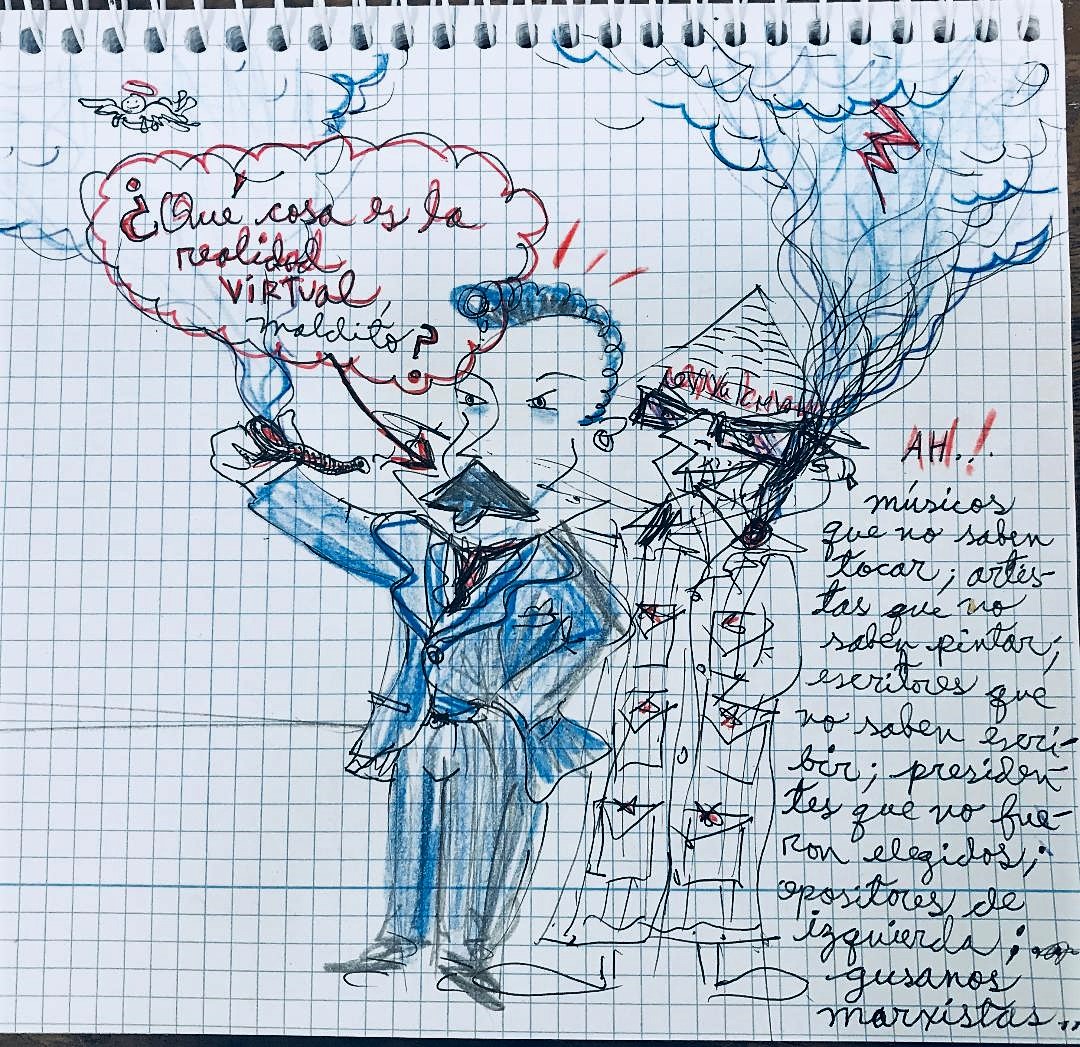 ¿Qué cosa es la
realidad
VIRTUAL,
maldito?
AH...!
músicos
que no saben
tocar; artis-
tas que no
saben pintar;
escritores que
no saben escri-
bir; presiden-
tes que no fue-
ron elegidos;
opositores de
izquierda;
gusanos
marxistas...